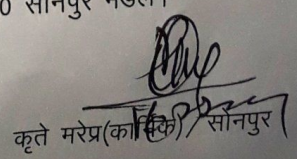 0 सोनपुर मंडल।
कृते मरेप्र(कार्मिक)/सोनपुर